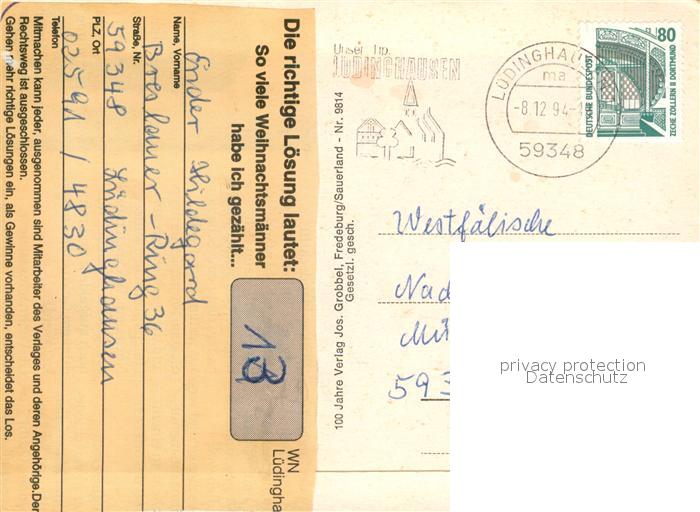 Die richtige Lösung lautet:
So viele Weihnachtsmänner
habe ich gezählt...
13
WN
Lüdingha
Name, Vorname
Ender Hildegard
Straße, Nr.
Breslauer-Ring 36
PLZ, Ort
59348 Lüdinghausen
Telefon
02591 / 4830
Mitmachen kann jeder, ausgenommen sind Mitarbeiter des Verlages und deren Angehörige. Der
Rechtsweg ist ausgeschlossen.
Gehen mehr richtige Lösungen ein, als Gewinne vorhanden, entscheidet das Los.
100 Jahre Verlag Jos. Grobbel, Fredeburg/Sauerland - Nr. 9814
Gesetzl. gesch.
Unser Tip:
LÜDINGHAUSEN
LÜDINGHAU
ma
-8.12.94-1
59348
80
DEUTSCHE BUNDESPOST
ZECHE ZOLLERN II DORTMUND
Westfälische
Nad
Mü
593
privacy protection
Datenschutz